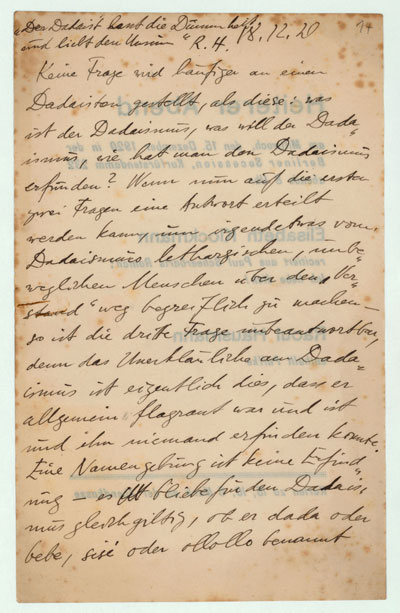 "Der Dadaist hasst die Dummheit
und liebt den Unsinn" R. H. 18.12.20
Keine Frage wird häufiger an einen
Dadaisten gestellt, als diese: was
ist der Dadaismus, was will der Dada-
ismus, wie hat man den Dadaismus
erfunden? Wenn nun auf die ersten
zwei Fragen eine Antwort erteilt
werden kann, um irgendetwas vom
Dadaismus lethargischen, unbe-
weglichen Menschen über den „Ver-
stand" weg begreiflich zu machen –
so ist die dritte Frage unbeantwortbar,
denn das Unerklärliche am Dada-
ismus ist eigentlich dies, dass er
allgemein flagrant war und ist
und ihn niemand erfinden konnte.
Eine Namengebung ist keine Erfind-
ung – es bliebe für den Dadais-
mus gleichgiltig, ob er dada oder
bebe, sisi oder ollollo benannt
Heiterer Abend